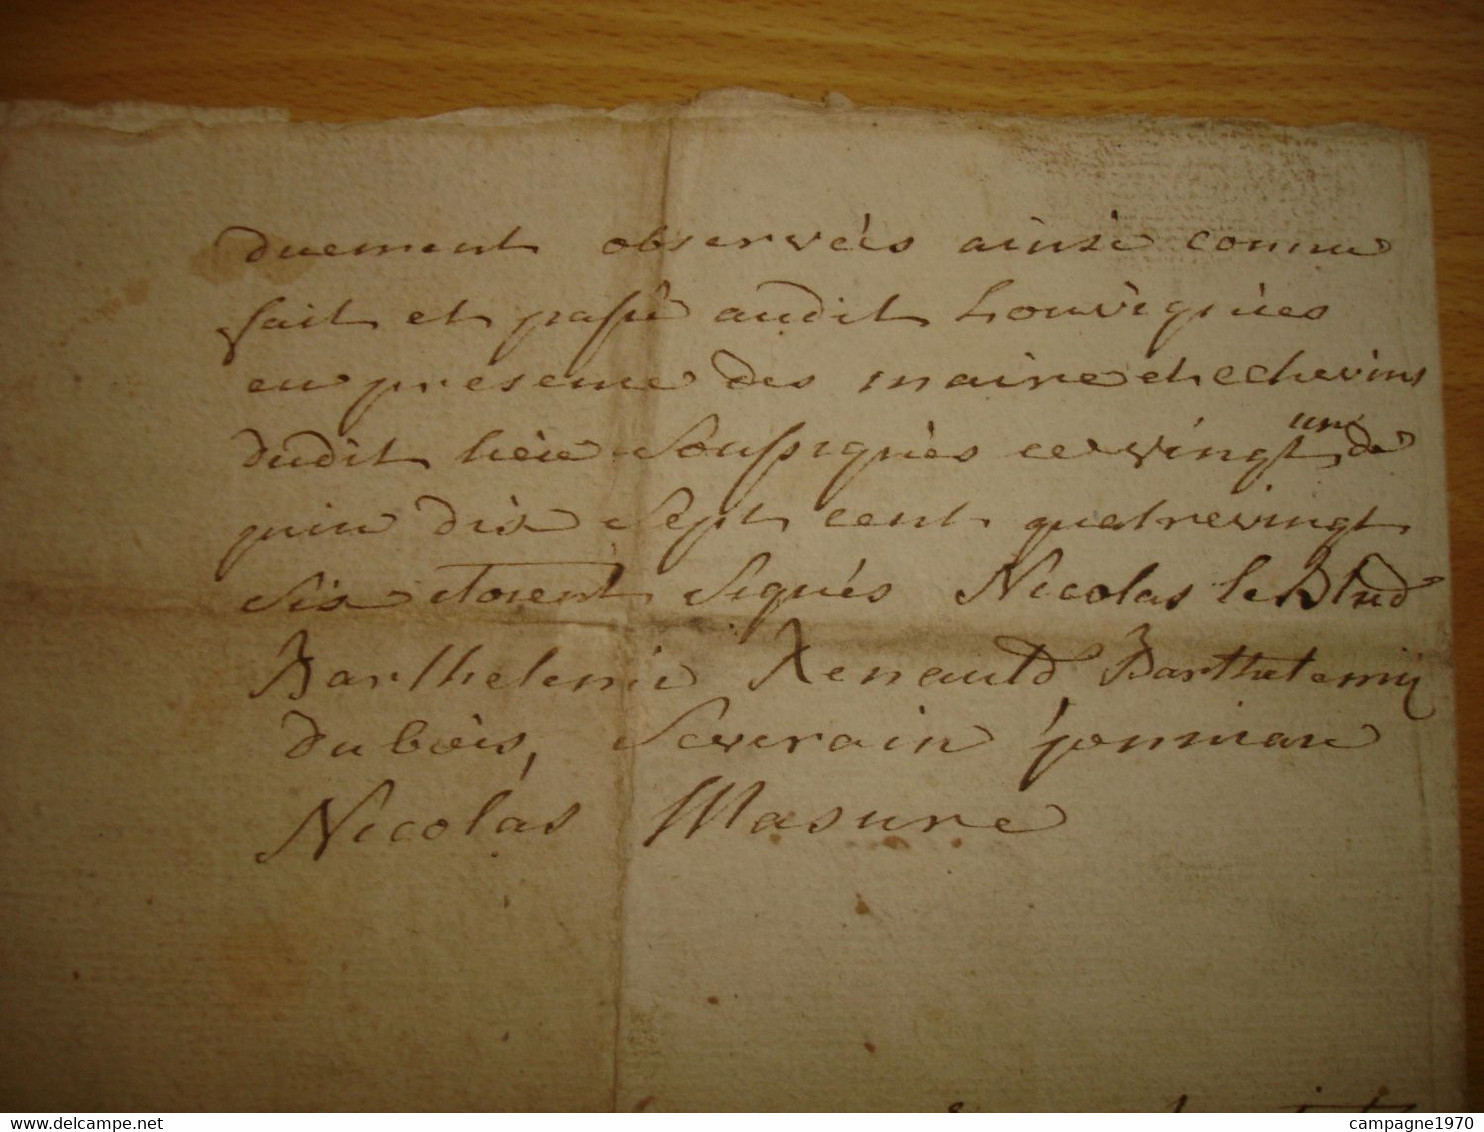 duement observées ainsi comme
fait et passé audit houvignies
en presence des maire et echevins
dudit lieu soussignés ce vingt un de
juin dix sept cent quatrevingt
six etoient signés Nicolas le Blud
Barthelemie Renauld Barthelemij
du bois, Severain
Nicolas Masure
delcampe.net
campagne1970